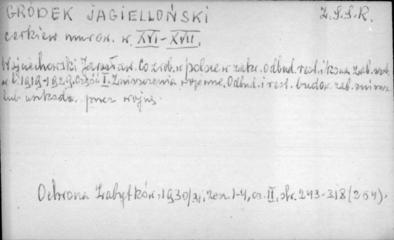 GRÓDEK JAGIELLOŃSKI Z.S.S.R.
cerkiew murow. w. XVI-XVII.
Wojciechowski Jarosław. Co zrob. w polsce w zakr. odbud. rest. i konserw. zab. arch.
w l. 1919-1929. Część I. Zniszczenia wojenne. Odbud. i rest. budow. zab. zniszcz.
lub uszkodz. przez wojnę.
Ochrona Zabytków, 1930/31, zesz. 1-4, cz. II, str. 243-318 (254).